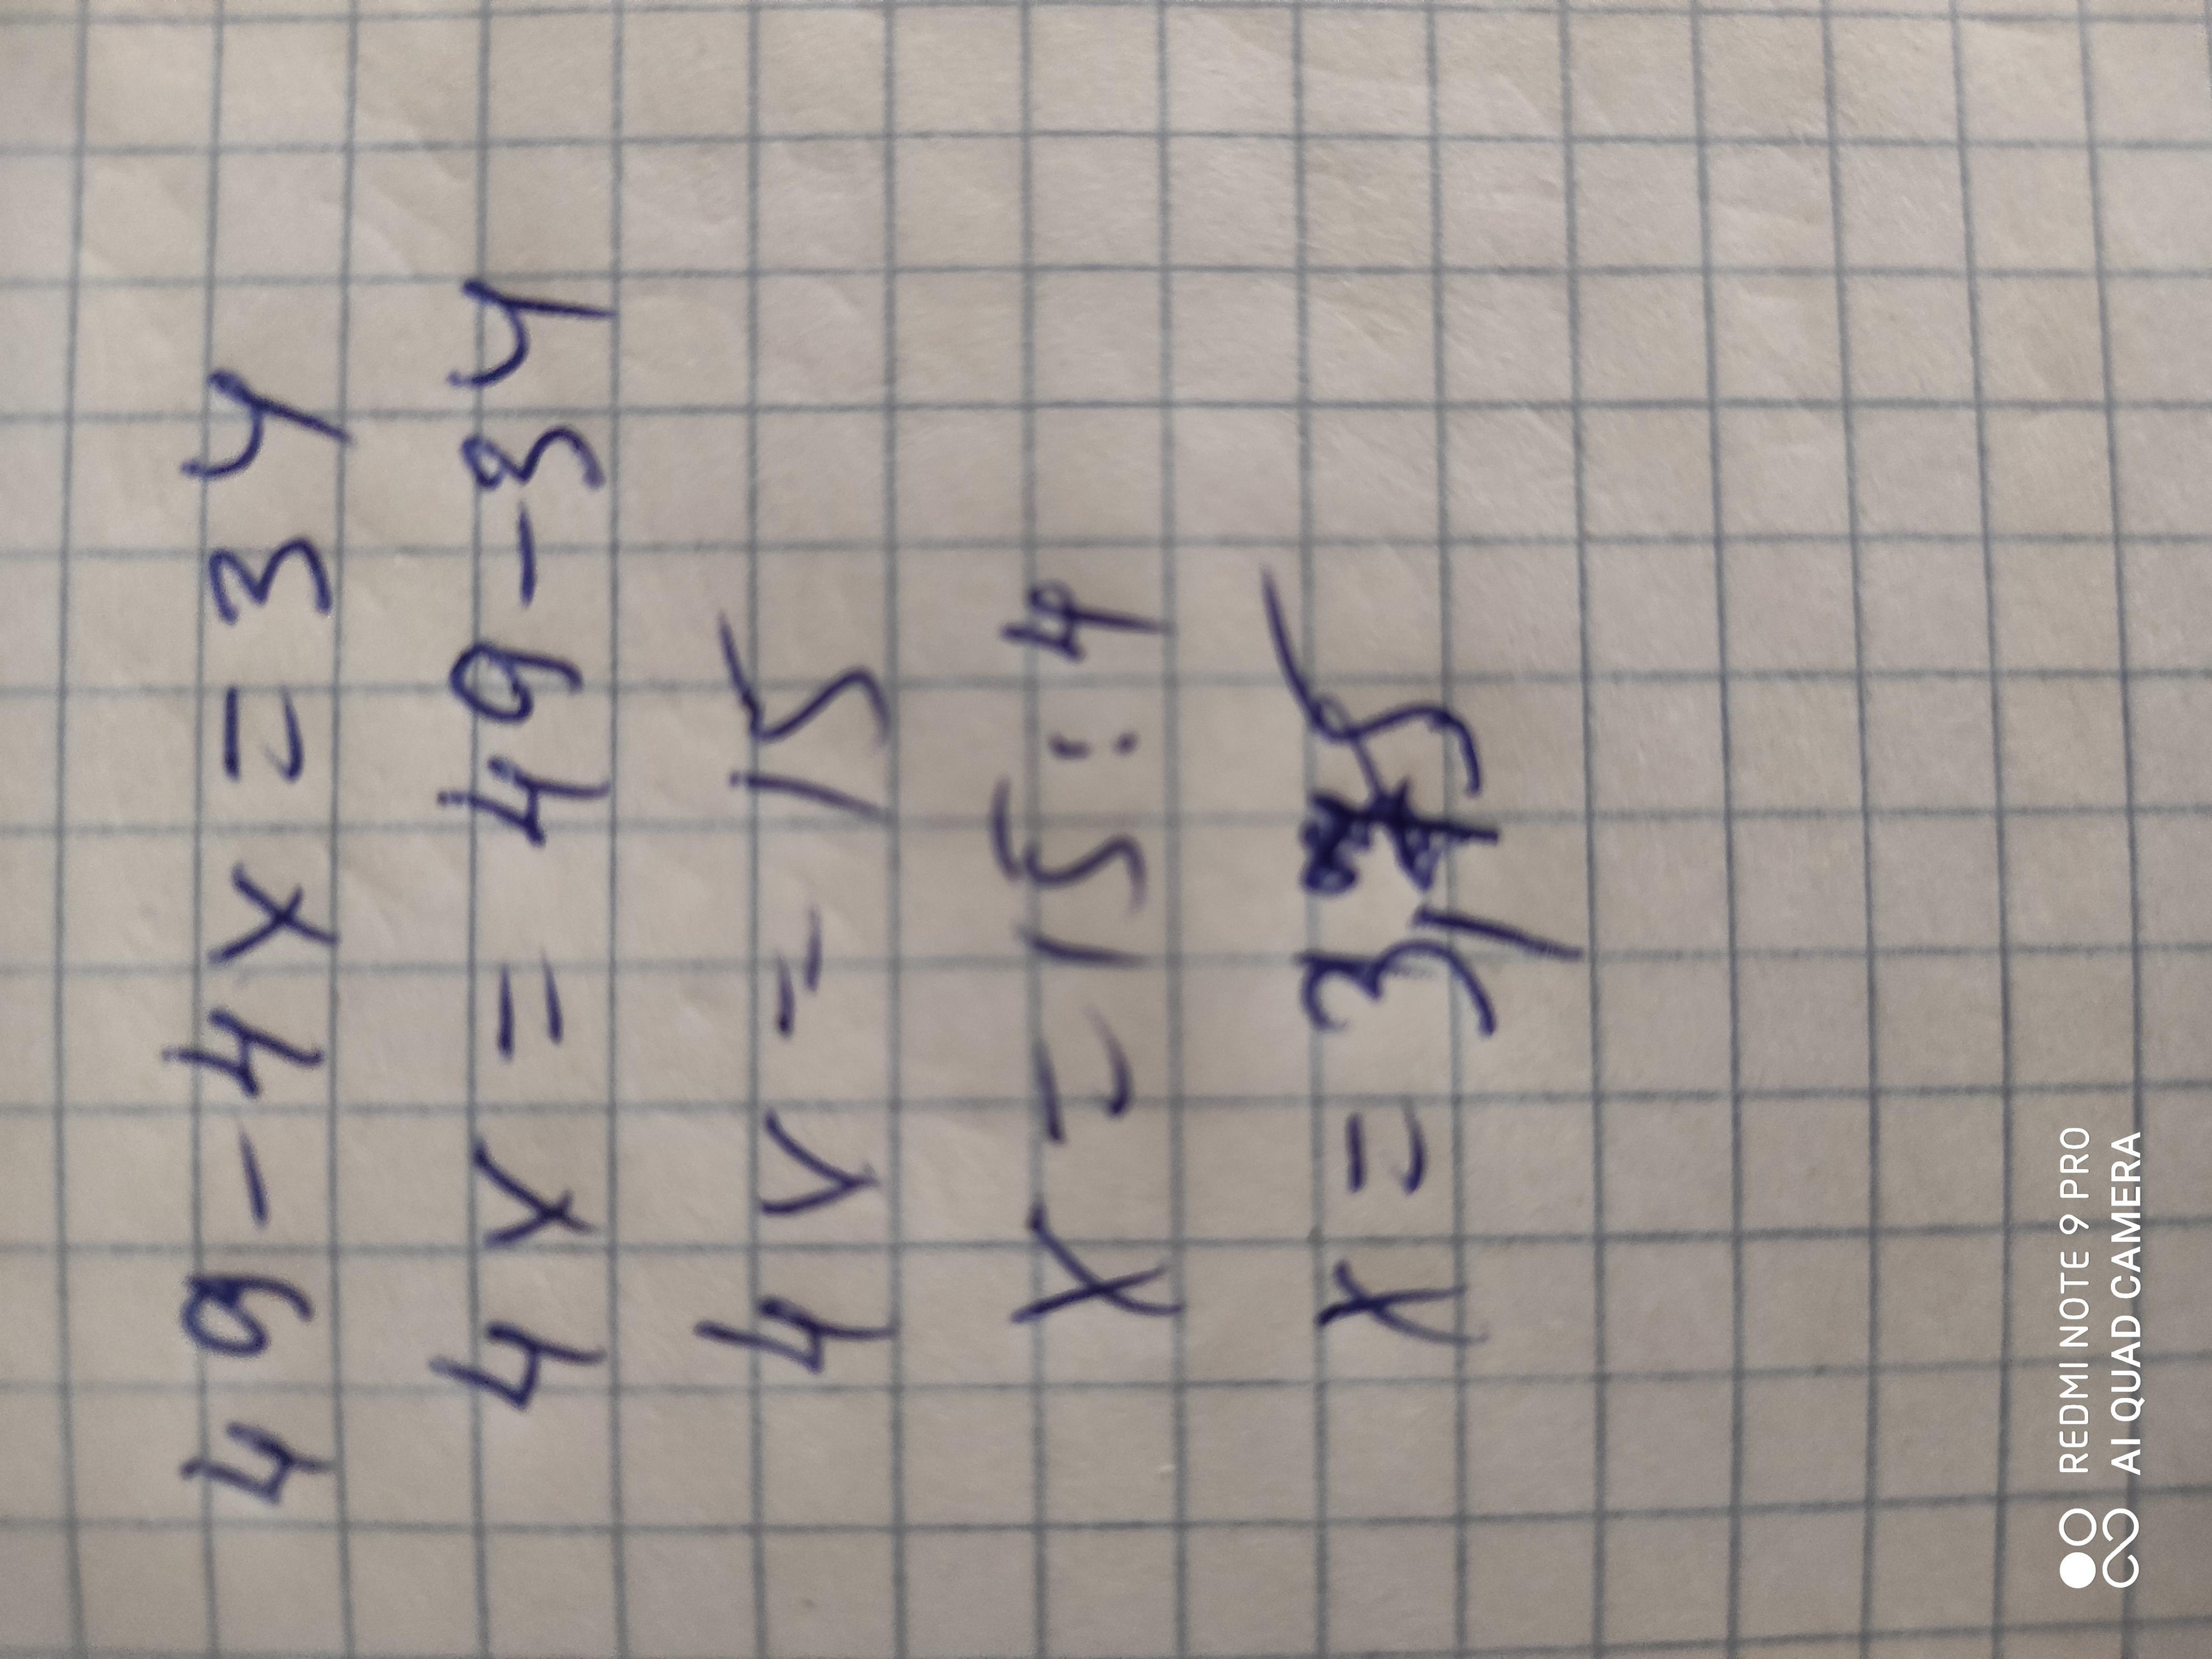 49-4x=34
4x=49-34
4x=15
x=15:4
x=3,75
REDMI NOTE 9 PRO
AI QUAD CAMERA